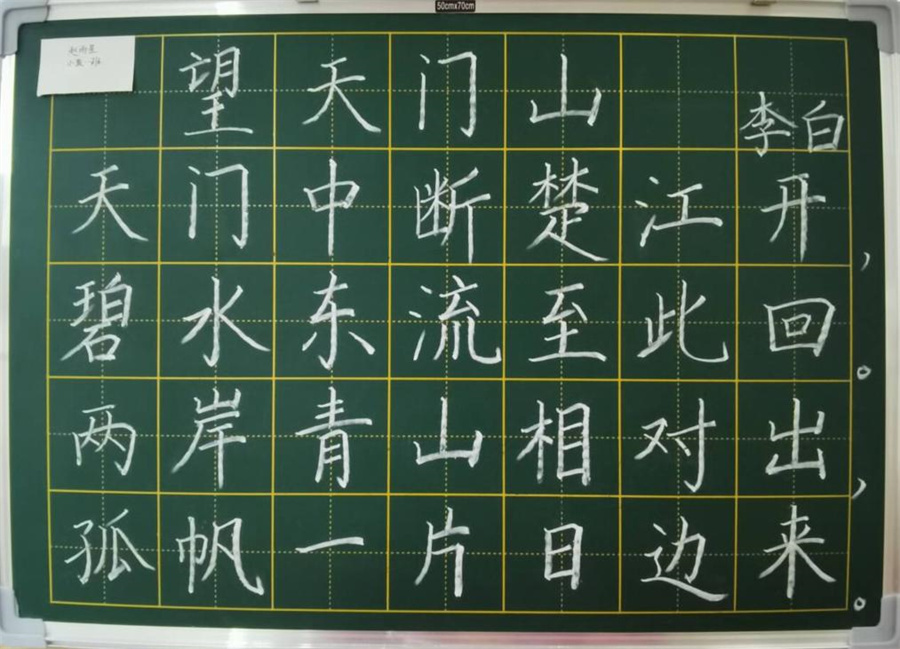 50cmx70cm
望天门山
李白
天门中断楚江开，
碧水东流至此回。
两岸青山相对出，
孤帆一片日边来。